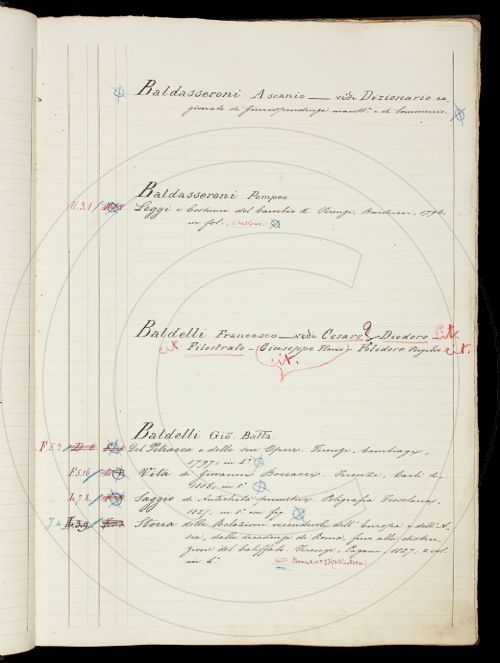 Baldasseroni Ascanio — vedi Dizionario ra-
gionato di Giurisprudenza maritt.ª e di Commercio.
Baldasseroni Pompeo
Leggi e Costumi del Cambio &. 1796.
in fol.
Baldelli Francesco — vedi Cesare - Diodoro -
cit.
cit. Filostrato - (Giuseppe Flavio) - Polidoro Virgilio cit.
cit.
Baldelli Gio Batta.
F.5.2. Del Petrarca e delle sue Opere. Firenze, Cambiagi,
1797. in 4°
F.5.16. Vita di Giovanni Boccacci. Firenze, Carli &.
1806. in 8°
L.7.8. Saggio di Antichità primitive. Poligrafia Fiesolana,
1825. in 8° con fig.
Storia delle Relazioni vicendevoli dell' Europa e dell' A-
sia, dalla decadenza di Roma, fino alla distru-
zione del Califfato. Firenze, Pagani, 1827. 2 vol.
in 4°